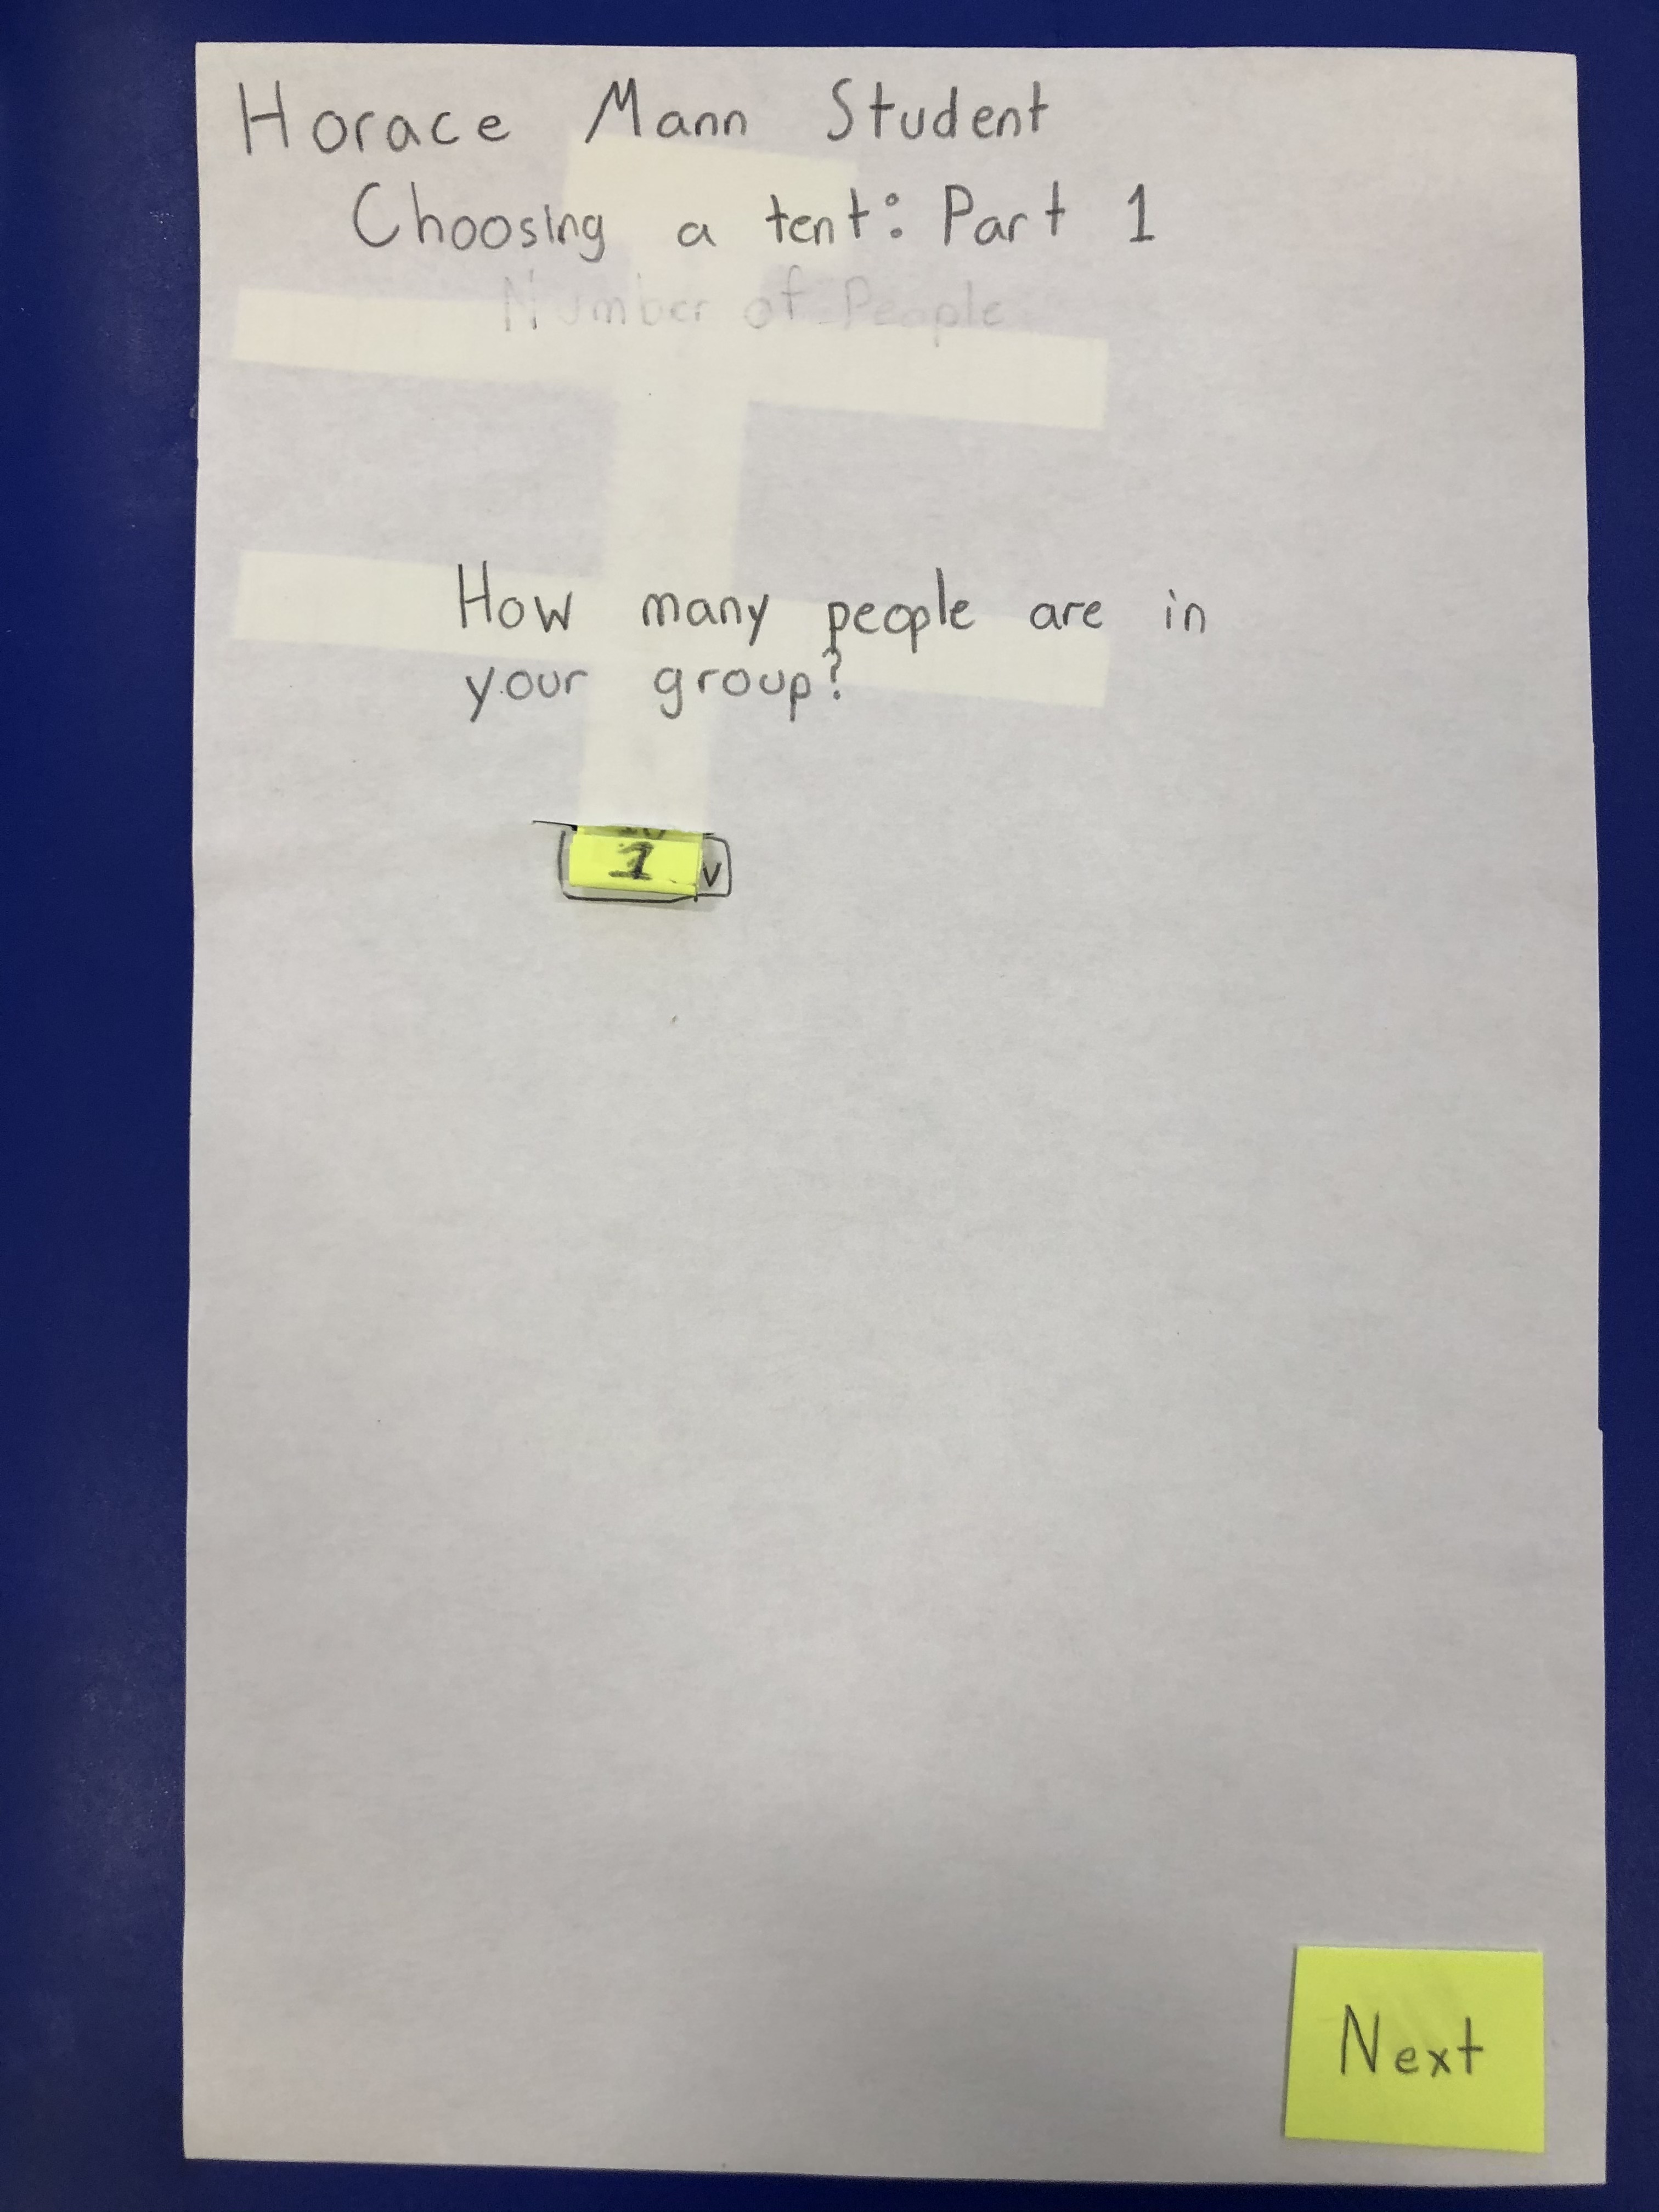 Horace Mann Student
Choosing a tent: Part 1
Number of People
How many people are in
your group?
1 v
Next